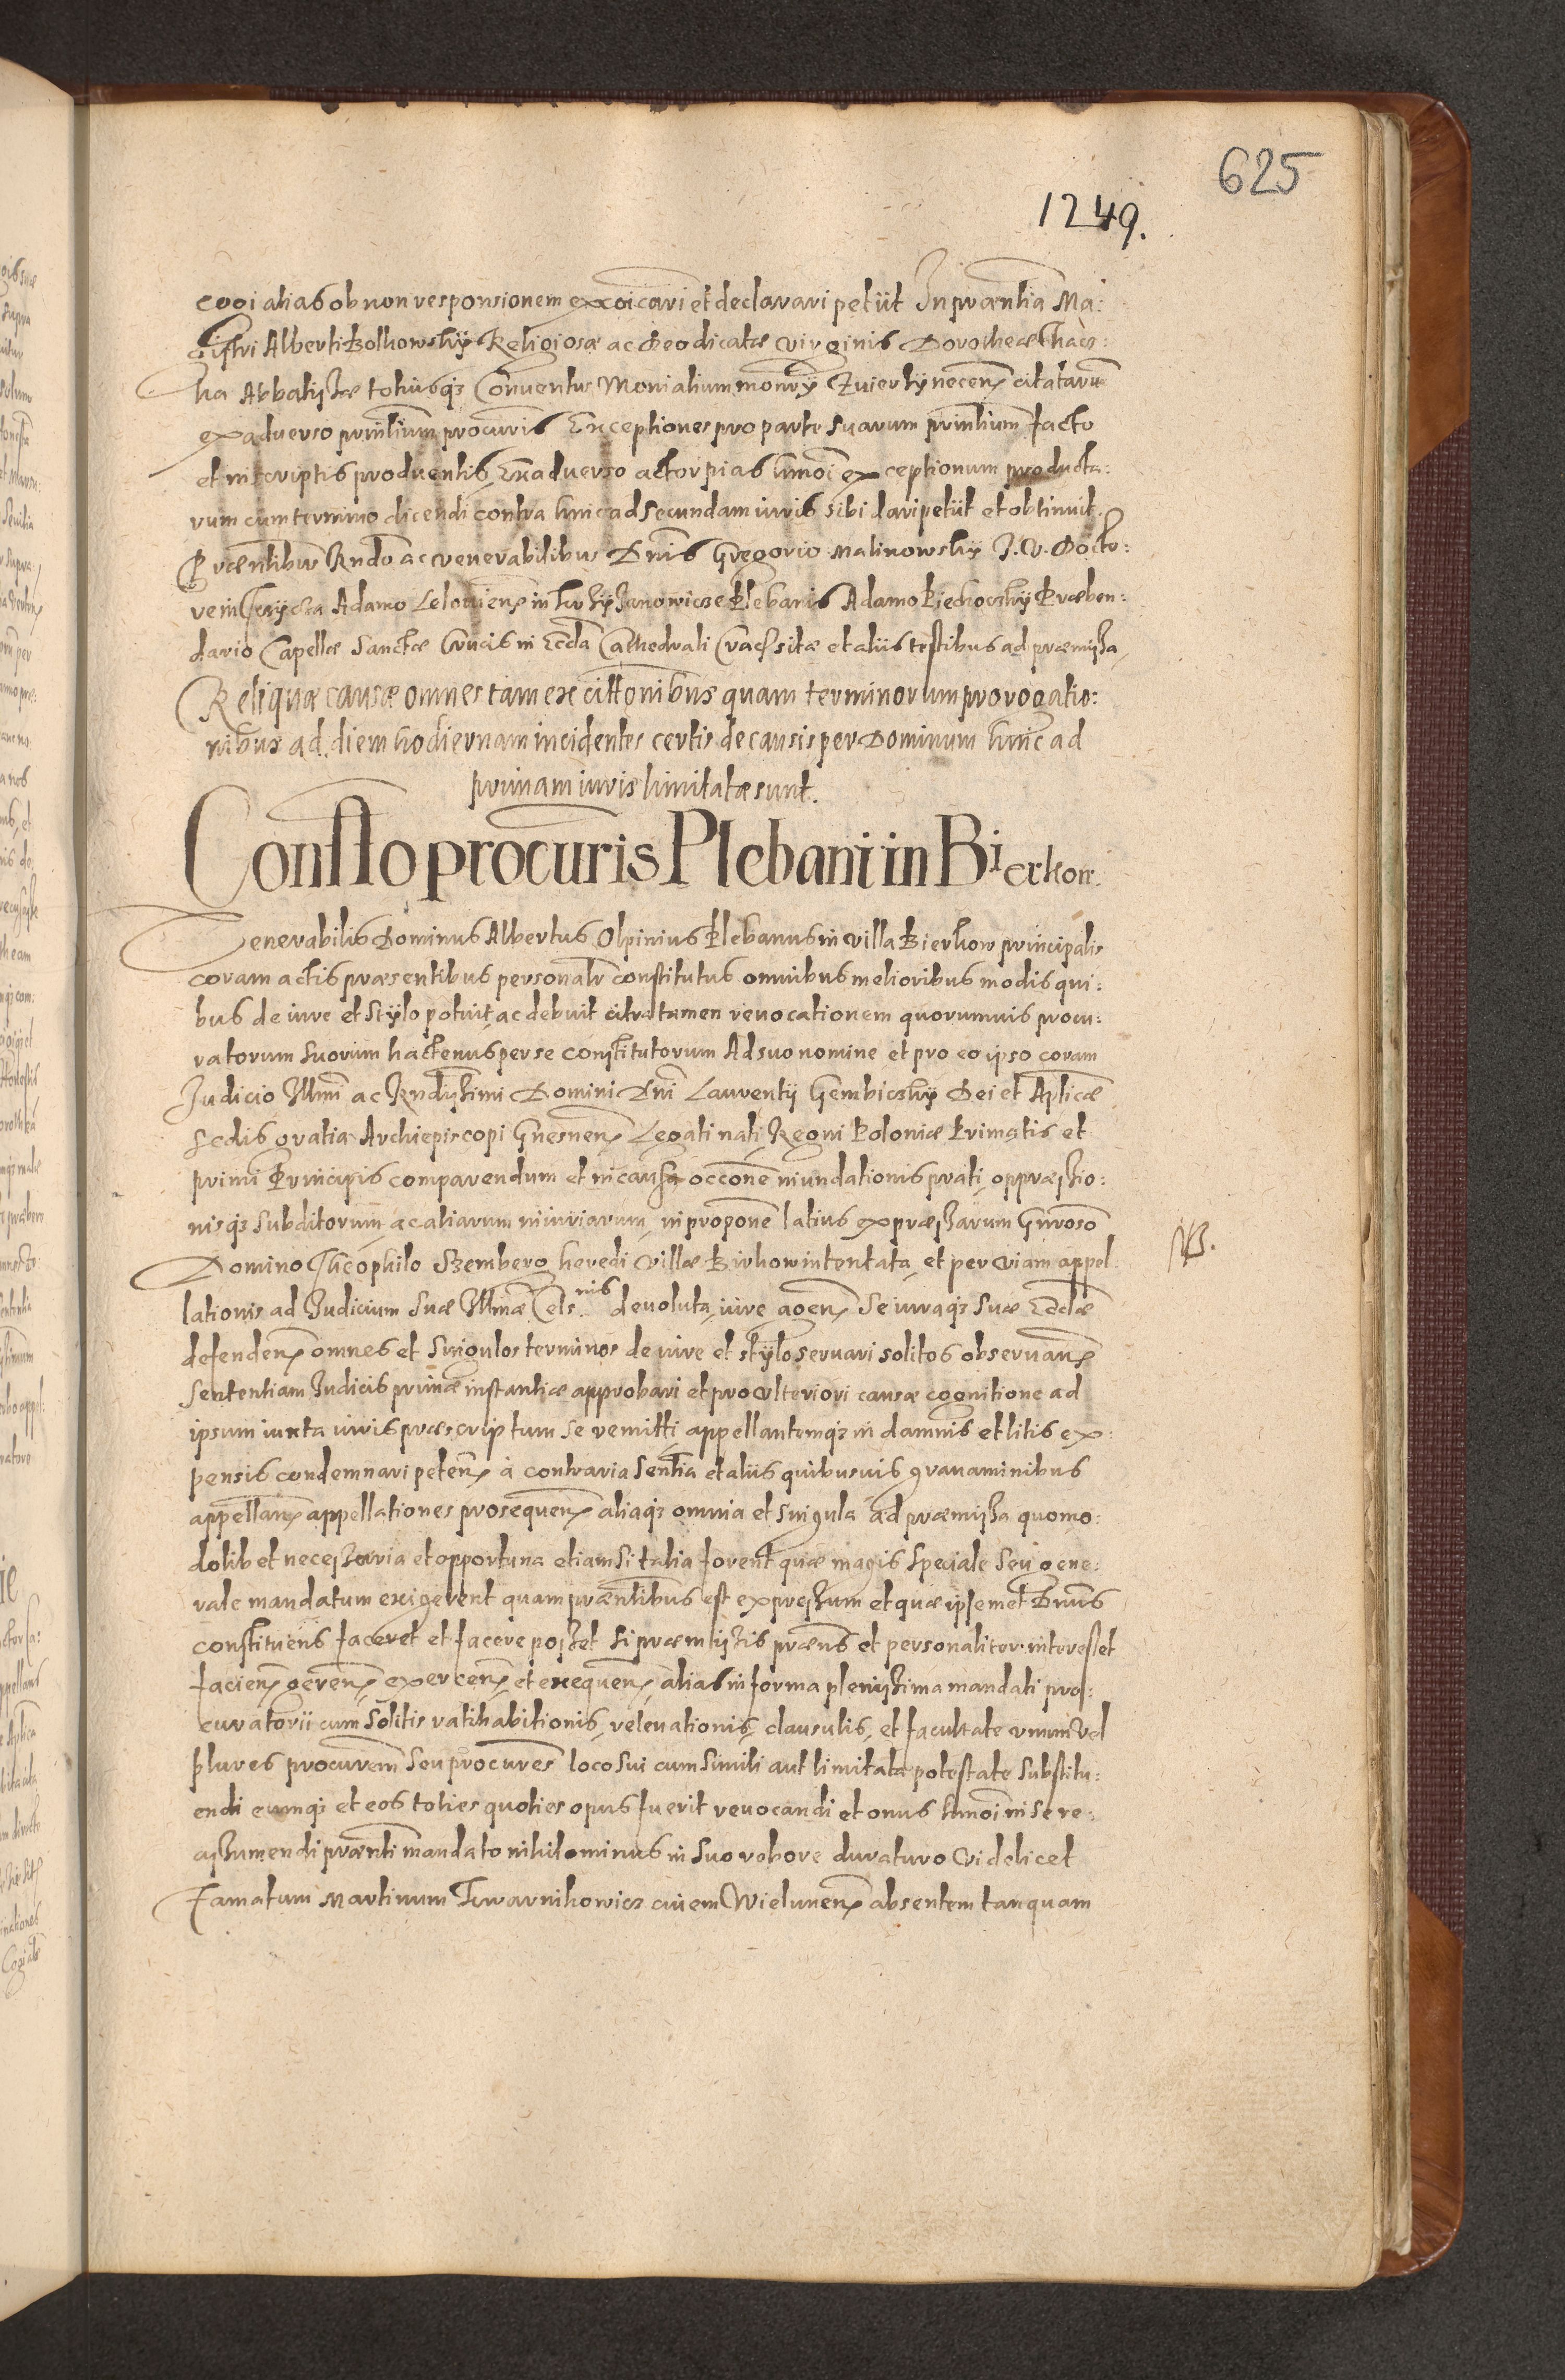 625
1249.
cogi alias ob non responsionem excoicari et declarari petiit In praesentia Ma:
gistri Alberti Bolkowsky Religiosæ ac Deodicatæ virginis Dorotheæ
ha Abbatissæ totiusq3 Conventus Monialium monrÿ Zwierzÿnecen citatarum
ex adverso prinlium procuris Exceptiones pro parte suarum prinlium facto
et in scriptis producentis, Ex adverso actor pias hmoi exceptionum producta:
rum cum termino dicendi contra hinc ad secundam iuris sibi dari petiit et obtinuit.
Præntibus Rndo ac venerabilibus Dnis Gregorio Malinowsky J. V. Docto:
re in Adamo Leloviens in Plebanis Adamo Piechocsky Præben:
dario Capellæ Sanctæ Crucis in Eccla Cathedrali Crac sitæ et aliis testibus ad præmissa,
Reliquæ causæ omnes tam ex cittonibus quam terminorum prorogatio:
nibus ad diem hodiernam incidentes certis de causis per Dominum hinc ad
primam iuris limitatæ sunt.
Constto procuris Plebani in Bierkow.
Venerabilis Dominus Albertus Olpinius Plebanus in villa Bierkow principalis
coram actis præsentibus personalr constitutus omnibus melioribus modis qui:
bus de iure et stÿlo potuit, ac debuit citra tamen revocationem quorumvis procu:
ratorum suorum hactenus per se constitutorum Ad suo nomine et pro eo ipso coram
Judicio Illmi ac Rndissimi Domini Dni Laurentij Gembicsky Dei et Aplicæ
sedis gratia Archiepiscopi Gnesnen Legati nati, Regni Poloniæ Primatis et
primi Principis comparendum et in causa occone inundationis prati, oppræssio:
nisq3 subditorum, ac aliarum iniuriarum, in propone latius expræssarum Gnroso
NB.
Domino Theophilo Szemberg heredi villæ Birkow intentata, et per viam appel
lationis ad Judicium Suæ Illmæ Cels.nis devoluta, iure agen se iuraq3 suæ Eccliæ
defenden omnes et singulos terminos de iure et stÿlo servari solitos observan
sententiam Judicis primæ instantiæ approbari et pro ulteriori causæ cognitione ad
ipsum iuxta iuris præscriptum se remitti, appellantemq3 in damnis et litis ex:
pensis condemnari peten à contraria sentia et aliis quibusvis gravaminibus
appellan appellationes prosequen aliaq3 omnia et singula ad præmissa quomo:
dolib et necessaria et opportuna etiam si talia forent quæ magis speciale seu gene:
rale mandatum exigerent quam præntibus est expressum et quæ ipsemet Dnus
constituens faceret et facere posset si præmissis præns et personaliter interesset
facien, geren, exercen, et exequen, alias in forma plenissima mandati pro:
curatorii cum solitis ratihabitionis, relevationis, clausulis, et facultate unum vel
plures procurem seu procures loco sui cum simili aut limitata potestate substitu:
endi eumq3 et eos toties quoties opus fuerit revocandi et onus hmoi in se re:
assumendi prænti mandato nihilominus in suo robore duraturo Videlicet
Famatum Martinum Twarnikowicz civem Wielunen absentem tanquam